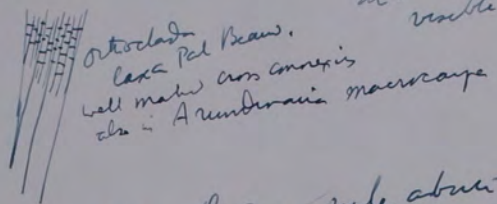 visible
Orthoclada
laxa Pal Beauv.
well marked cross connexis
also in Arundinaria macrocarpa